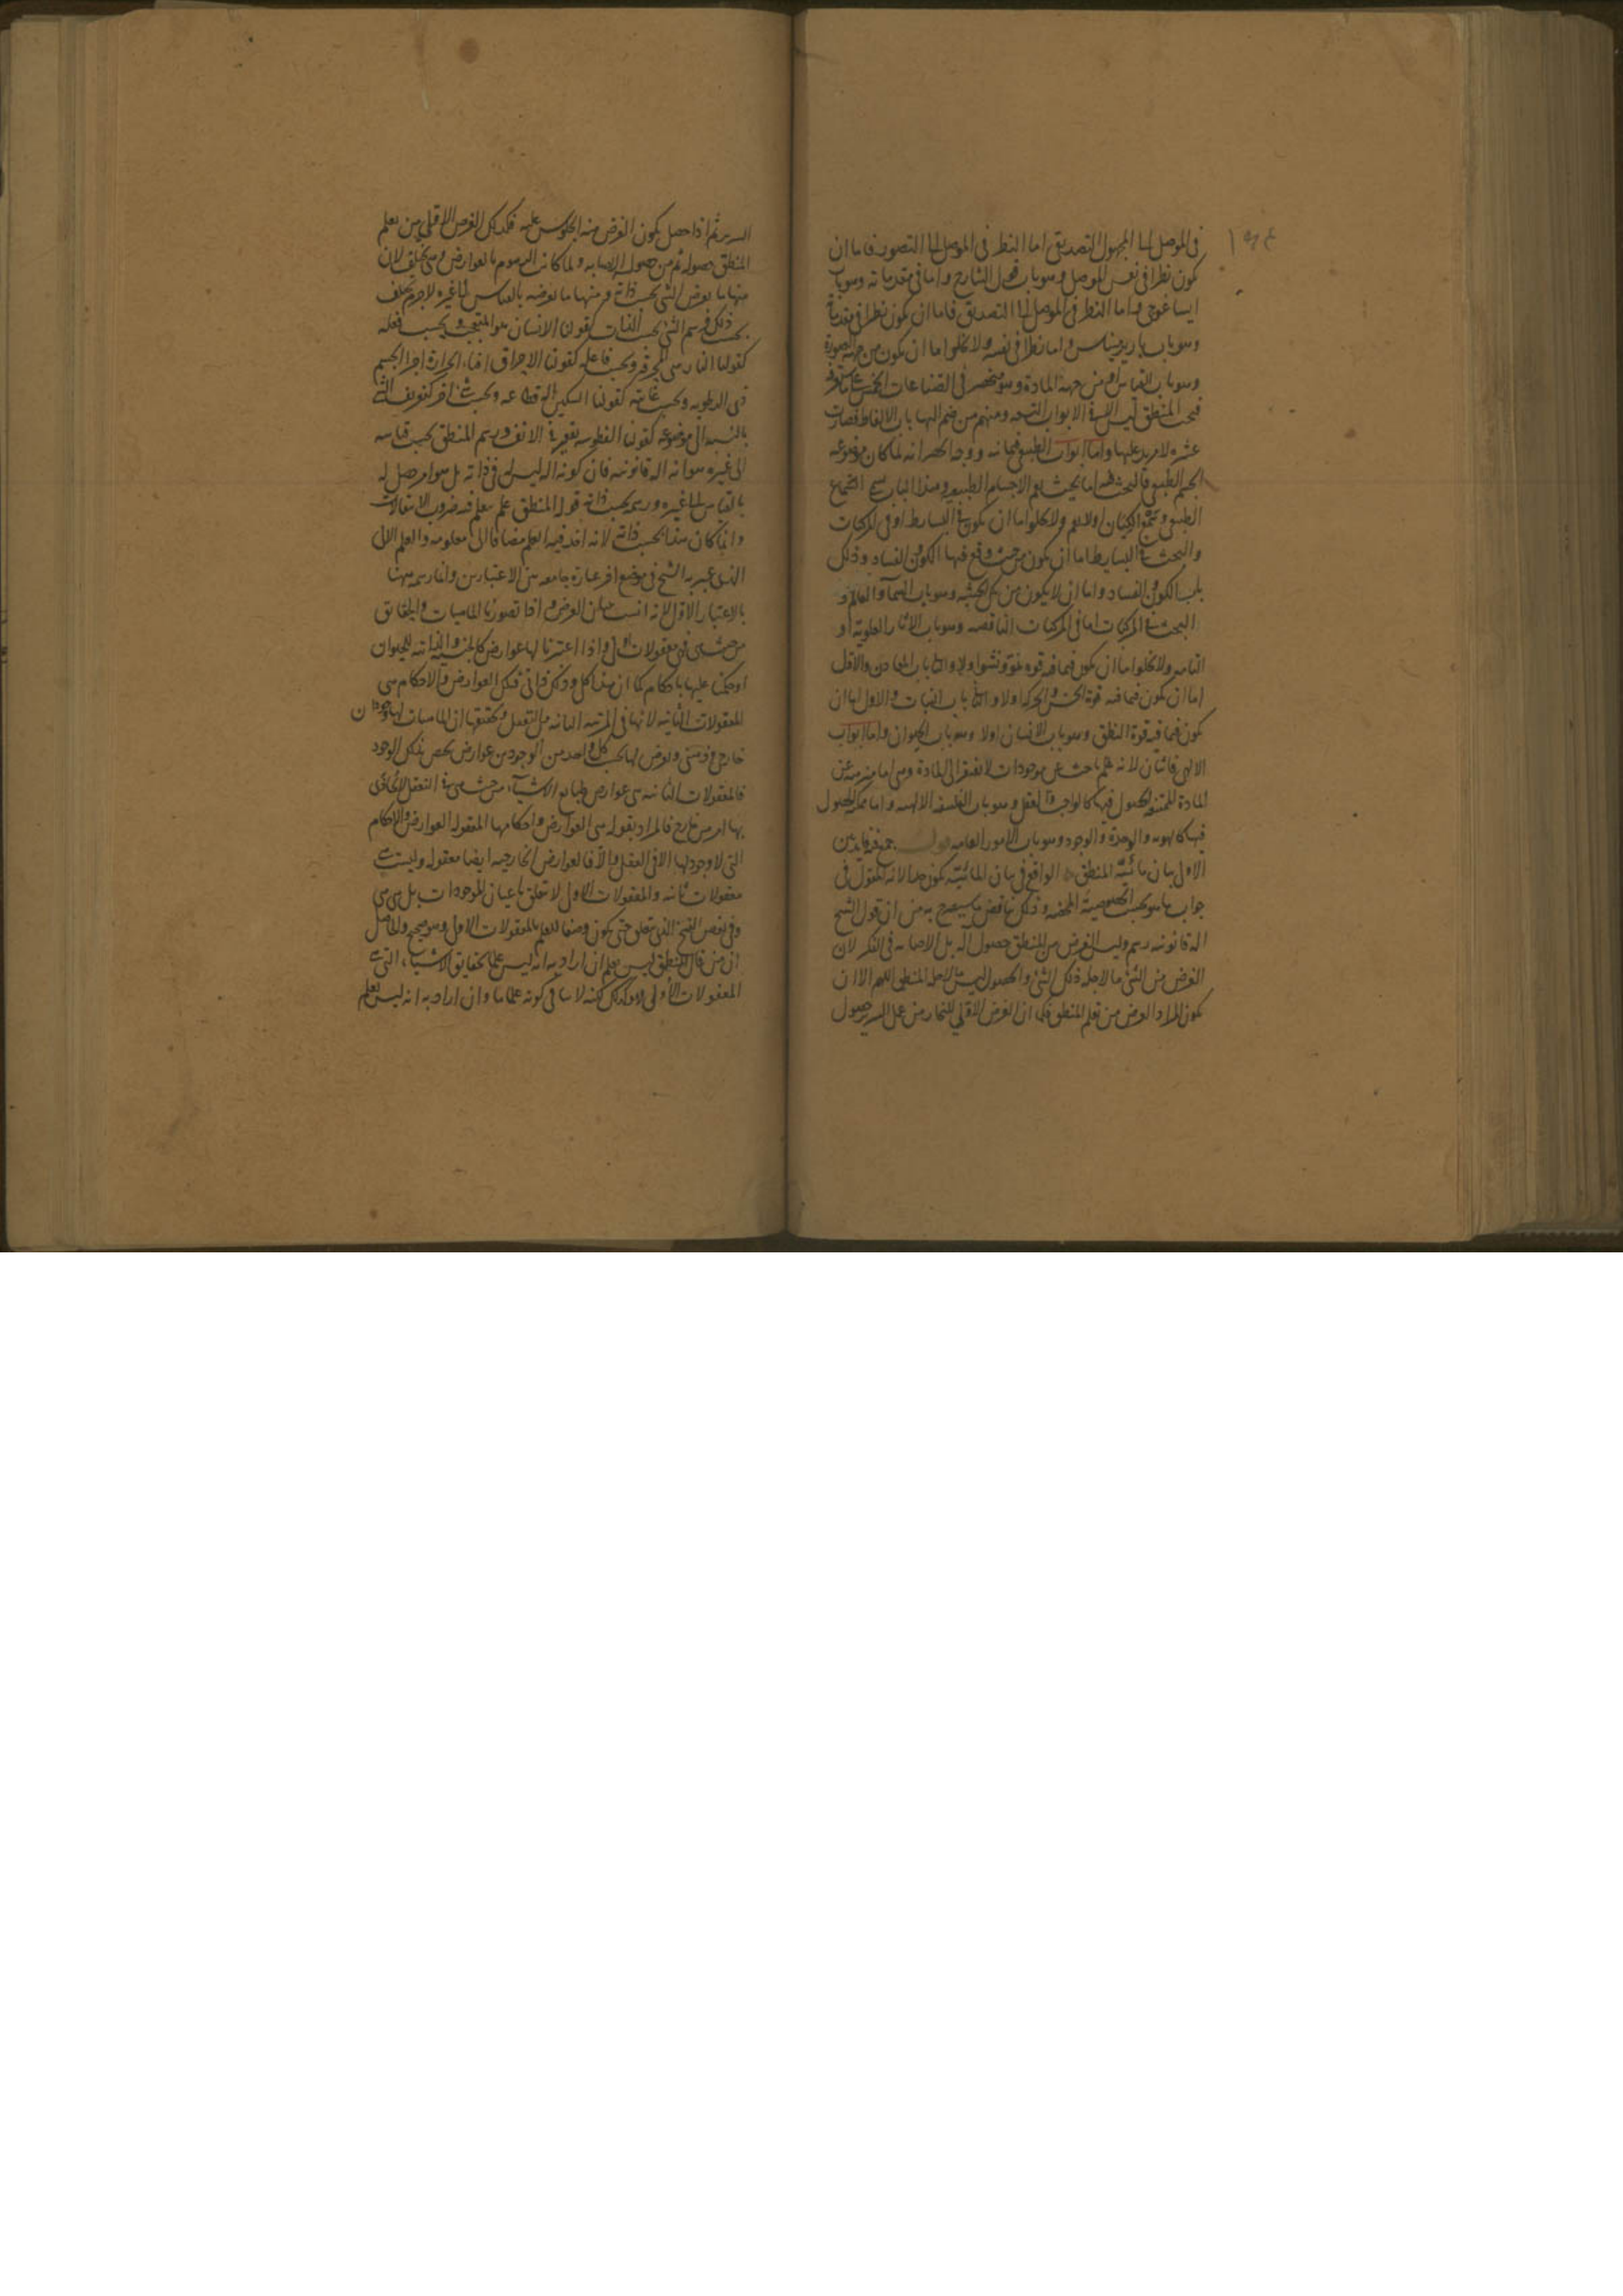 في الموصل الى المجهول التصديقي اما النظر في الموصل الى التصور فاما ان
يكون نظرا في نفس الموصل وهو باب قول الشارح واما في مقدماته وهو باب
ايساغوجي واما النظر في الموصل الى التصديق فاما ان يكون نظرا في مقدماته
وهو باب باريرميناس واما نظرا في نفسه ولا يخلوا اما ان يكون من جهة الصورة
وهو باب القياس او من جهة المادة وهو منحصر في الصناعات الخمس
فبحث المنطقي ليس الا في الابواب التسعه ومنهم من ضم اليها باب الالفاظ فصارت
عشره لا مزيد عليها واما ابواب الطبيعي فثمانيه ووجه الحصر انه لما كان موضوعه
الجسم الطبيعي فالبحث فيه اما بحيث يعم الاجسام الطبيعيه وهذا الباب يسمى السماع
الطبيعي وسمع الكيان اولا يعم ولا يخلوا اما ان يكون في البسايط او في المركبات
والبحث في البسايط اما ان يكون من حيث وقع فيها الكون والفساد وذلك
باب الكون والفساد واما ان لا يكون من تلك الحيثيه وهو باب السماء والعالم و
البحث في المركبات اما في المركبات الناقصه وهو باب الاثار العلويه او
التامه ولا يخلوا اما ان يكون فيما فيه قوة نمو ونشو اولا والثاني باب المعادن والاول
اما ان يكون فيما فيه قوة الحس والحركه اولا والثاني باب النبات والاول اما ان
يكون فيما فيه قوة النطق وهو باب الانسان اولا وهو باب الحيوان واما ابواب
الالهي فاثنان لانه علم باحث عن موجودات لا تفتقر الى المادة وهي اما منزهة عن
المادة ممتنعة الحصول فيها كالواجب والعقل وهو باب الفلسفه الالهيه واما ممكنة الحصول
فيها كالهويه والوحدة والوجود وهو باب الامور العامه
الاول بيان مائية المنطق الواقع في بيان المائية يكون حدا لانه المقول في
جواب ما هو بحسب الخصوصية المحضه وذلك يناقض ما سيصرح به من ان قول الشيخ
الة قانونيه رسم وليس الغرض من المنطق حصول اله بل الاصابه في الفكر لان
الغرض من الشئ ما لاجله ذلك الشئ والحصول ليس ما لاجله المنطق اللهم الا ان
يكون المراد الغرض من تعلم المنطق فكما ان الغرض الاول للنجار من عمل السرير حصول
السرير ثم اذا حصل يكون الغرض منه الجلوس عليه فكذلك الغرض الاول من تعلم
المنطق حصوله ثم من حصوله الاصابه ولما كانت الرسوم بالعوارض وهي تختلف لان
منها ما يعرض للشئ بحسب ذاته ومنها ما يعرضه بالقياس الى غيره لا جرم يختلف
بحسب ذلك فرسم الشئ بحسب الذات كقولنا الانسان هو المتعجب وبحسب فعله
كقولنا النار هي المحرقه وبحسب فاعله كقولنا الاحراق افناء الحرارة اجزاء الجسم
ذي الرطوبه وبحسب غايته كقولنا السكين اله قطاعه وبحسب شئ اخر كتعريف الشئ
بالنسبه الى موضوعه كقولنا الفطوسه تقعير في الانف ورسم المنطق بحسب قياسه
الى غيره هو انه اله قانونيه فان كونه اله ليس له في ذاته بل هو امر حصل له
بالقياس الى غيره ورسمه بحسب ذاته قوله المنطق علم يتعلم فيه ضروب الانتقالات
وانما كان هذا بحسب ذاته لانه اخذ فيه العلم مضافا الى معلومه والعلم الالي
الذي عبر به الشيخ في موضع اخر عبارة جامعه بين الاعتبارين وانما رسمه ههنا
بالاعتبار الاول لانه انسب ببيان الغرض و اذا تصورنا الماهيات والحقائق
من حيث هي فهي معقولات اولى واذا اعتبرنا لها عوارض كالجنسيه والذاتيه للحيوان
او حكمنا عليها باحكام كما ان هذا كلي وذلك ذاتي فتلك العوارض والاحكام هي
المعقولات الثانيه لانها في المرتبه الثانيه من التعقل وتحقيقها ان للماهيات وجودان
خارجي وذهني ويعرض لها بحسب كل واحد من الوجودين عوارض تختص بذلك الوجود
فالمعقولات الثانيه هي عوارض طبايع الاشياء من حيث هي في التعقل لا يحاذى
بها امر من خارج فالمراد بقوله هي العوارض واحكامها المعقوله العوارض والاحكام
التي لا وجود لها الا في العقل والا فالعوارض الخارجيه ايضا معقوله وليست
معقولات ثانيه والمعقولات الاول لا تتعلق باعيان الموجودات بل هي هي
وفي بعض النسخ الذي يتعلق حتى يكون وصفا للعلم بالمعقولات الاول وهو صحيح والحاصل
ان من قال المنطق ليس بعلم ان اراد به انه ليس علما بحقايق الاشياء التي هي
المعقولات الاولى فهو كذلك لكنه لا ينافي كونه علما ما وان اراد به انه ليس بعلم